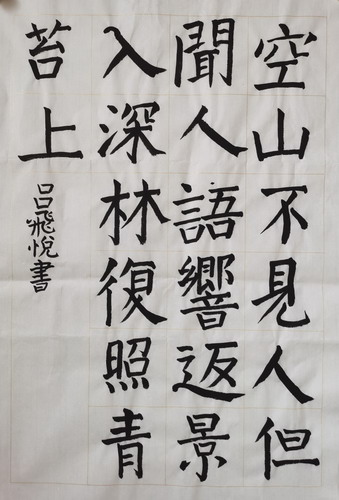 空山不見人但
聞人語響返景
入深林復照青
苔上
呂飛悅書